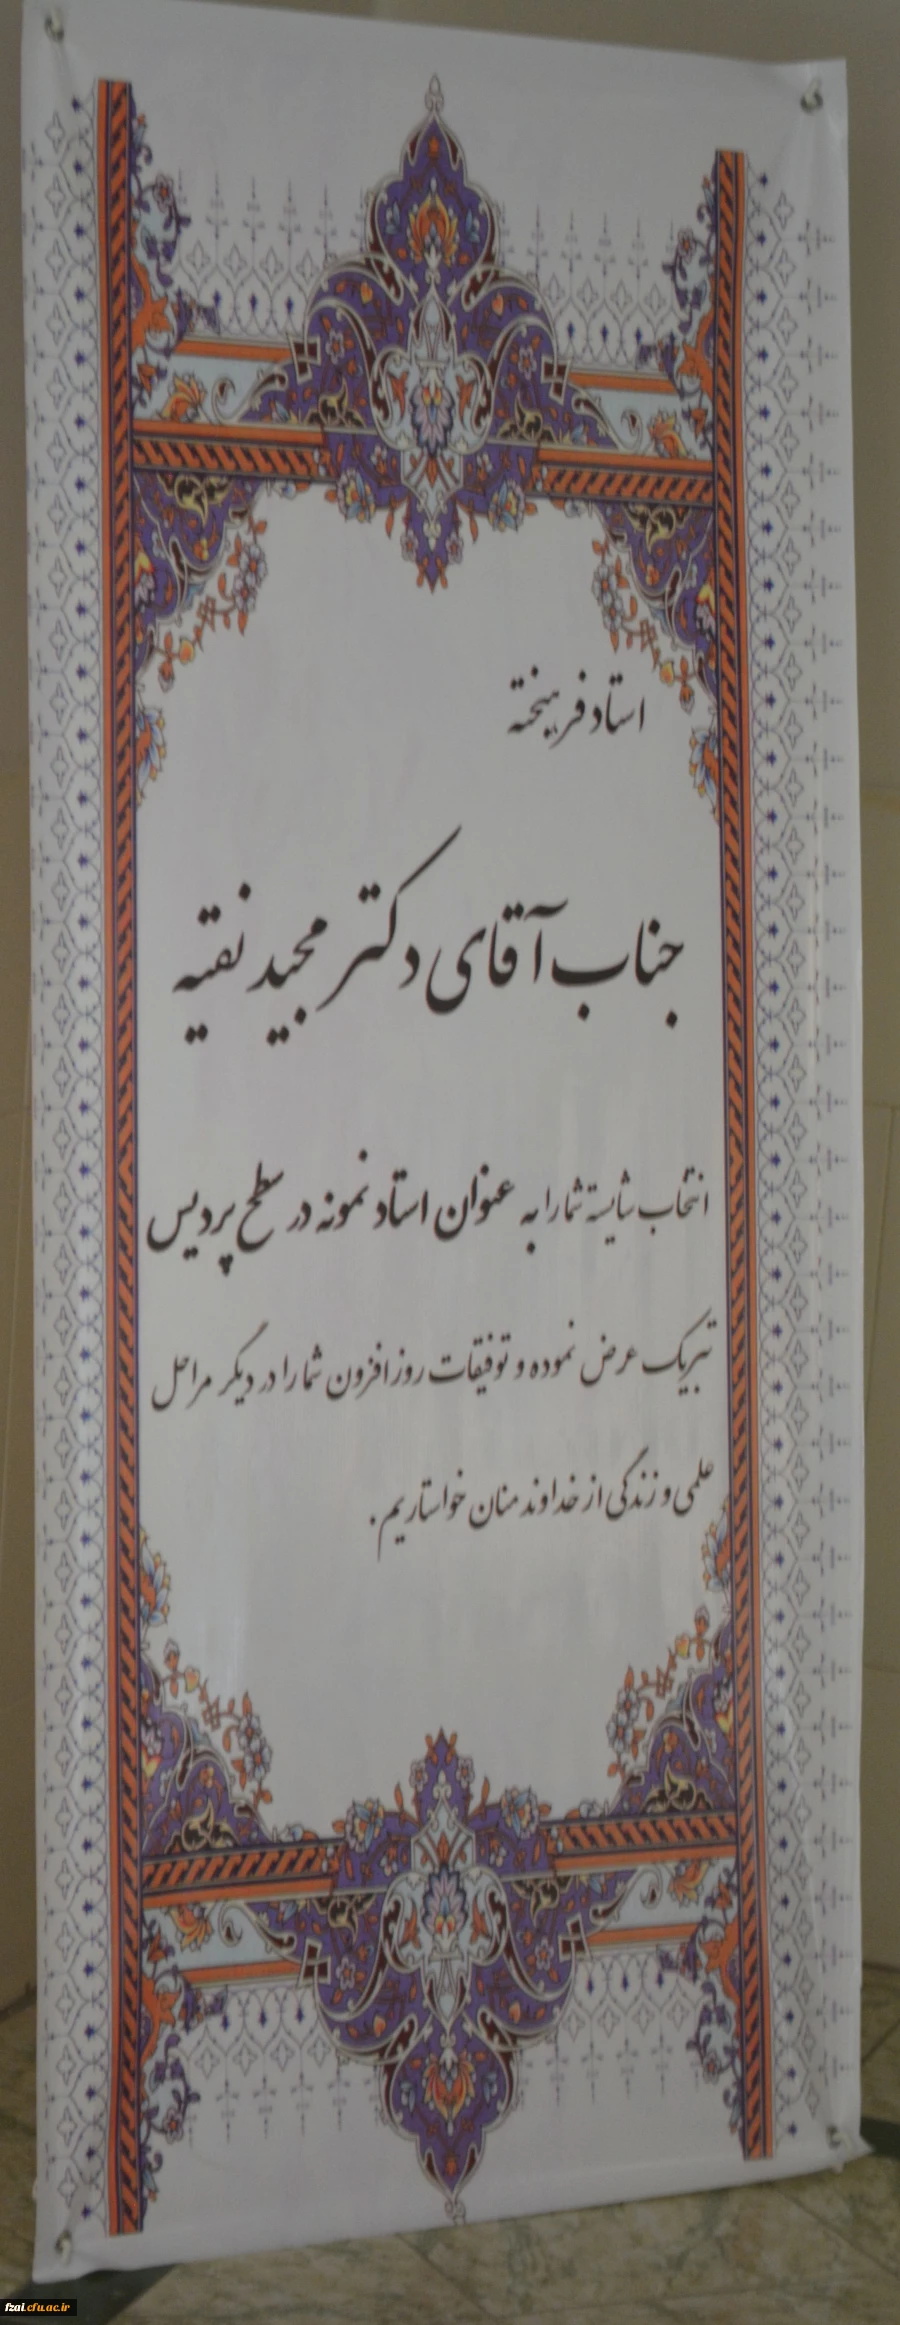 استاد فرهیخته
جناب آقای دکتر مجید نقیه
انتخاب شایسته شما را به عنوان استاد نمونه در سطح پردیس
تبریک عرض نموده و توفیقات روز افزون شما را در دیگر مراحل
علمی و زندگی از خداوند منان خواستاریم.
fzai.cfu.ac.ir